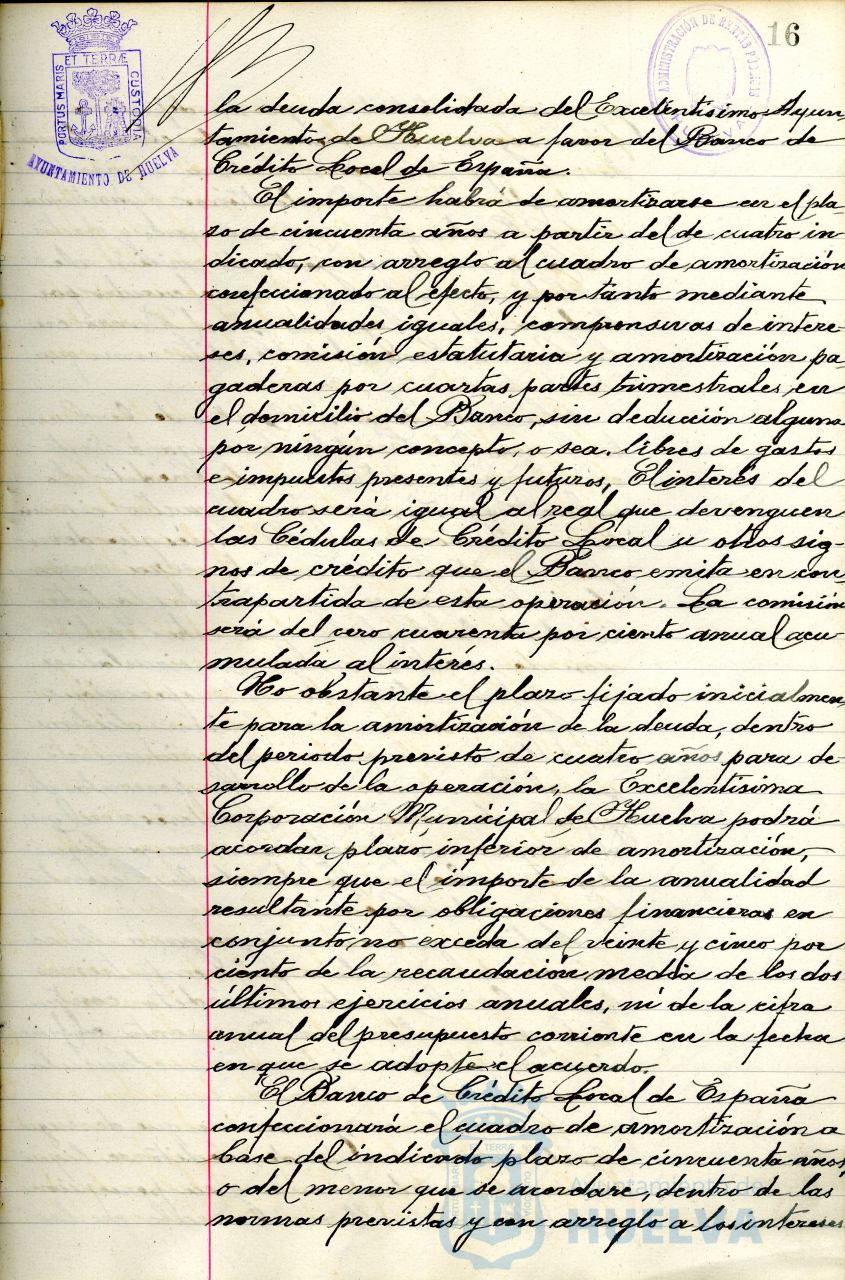 16
PORTUS MARIS ET TERRÆ CUSTODIA
AYUNTAMIENTO DE HUELVA
ADMINISTRACIÓN DE RENTAS PÚBLICAS
la deuda consolidada del Excelentísimo Ayun-
tamiento de Huelva a favor del Banco de
Crédito Local de España.
El importe habrá de amortizarse en el pla-
zo de cincuenta años a partir del de cuatro in-
dicado, con arreglo al cuadro de amortización
confeccionado al efecto, y por tanto mediante
anualidades iguales, comprensivas de intere-
ses, comisión estatutaria y amortización pa-
gaderas por cuartas partes trimestrales, en
el domicilio del Banco, sin deducción alguna
por ningún concepto, o sea, libres de gastos
e impuestos presentes y futuros. El interés del
cuadro será igual al real que devenguen
las Cédulas de Crédito Local u otros sig-
nos de crédito que el Banco emita en con-
trapartida de esta operación. La comisión
será del cero cuarenta por ciento anual acu-
mulada al interés.
No obstante el plazo fijado inicialmen-
te para la amortización de la deuda, dentro
del periodo previsto de cuatro años para de-
sarrollo de la operación, la Excelentísima
Corporación Municipal de Huelva podrá
acordar plazo inferior de amortización,
siempre que el importe de la anualidad
resultante por obligaciones financieras en
conjunto no exceda del veinte y cinco por
ciento de la recaudación media de los dos
últimos ejercicios anuales, ni de la cifra
anual del presupuesto corriente en la fecha
en que se adopte el acuerdo.
El Banco de Crédito Local de España
confeccionará el cuadro de amortización a
base del indicado plazo de cincuenta años,
o del menor que se acordare, dentro de las
normas previstas y con arreglo a los intereses
Ayuntamiento de
HUELVA